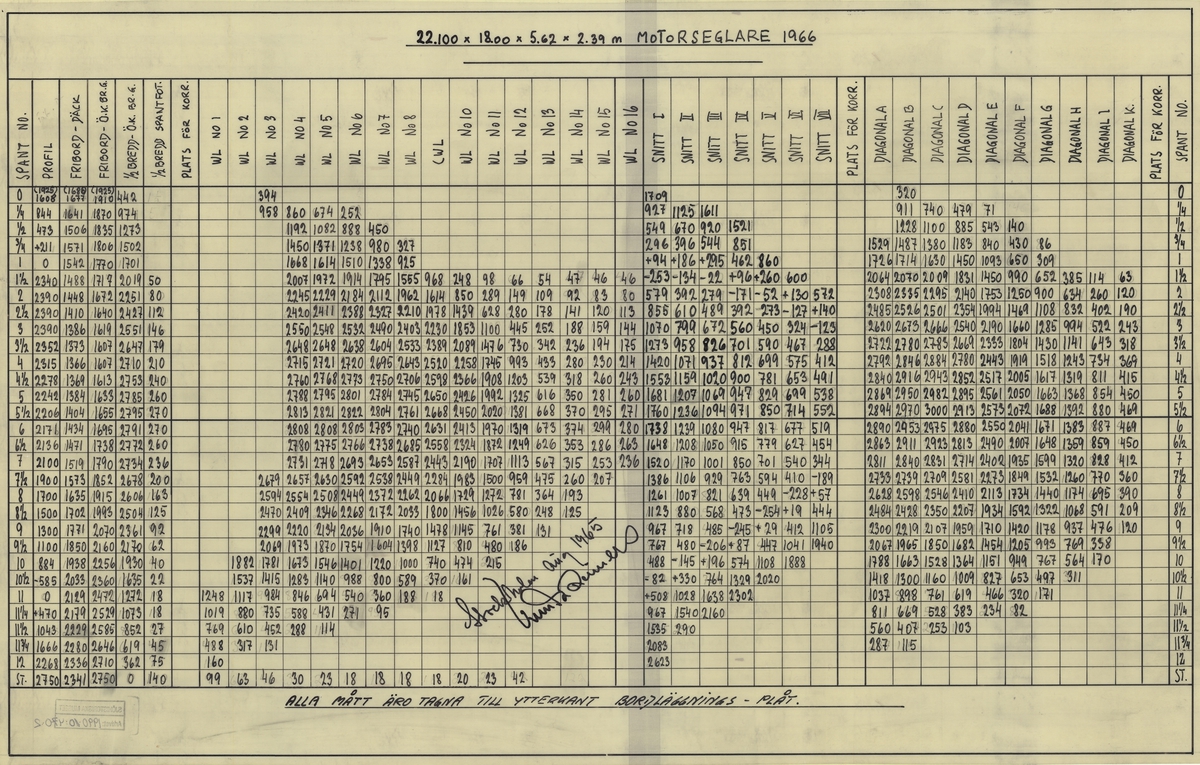 22.100 x 18.00 x 5.62 x 2.39 m MOTORSEGLARE 1966
SPANT NO. PROFIL FRIBORD - DÄCK FRIBORD - Ö.K. BR.G. ½ BREDD - Ö.K. BR.G. ½ BREDD SPANTFOT. PLATS FÖR KORR. WL NO 1 WL NO 2 WL NO 3 WL NO 4 WL NO 5 WL NO 6 WL NO 7 WL NO 8 CWL WL NO 10 WL NO 11 WL NO 12 WL NO 13 WL NO 14 WL NO 15 WL NO 16 SNITT I SNITT II SNITT III SNITT IV SNITT V SNITT VI SNITT VII PLATS FÖR KORR. DIAGONAL A DIAGONAL B DIAGONAL C DIAGONAL D DIAGONAL E DIAGONAL F DIAGONAL G DIAGONAL H DIAGONAL I DIAGONAL K. PLATS FÖR KORR. SPANT NO.
0 (1925) 1608 (1688) 1677 (1925) 1910 442 394 1709 320 0
¼ 844 1641 1870 974 958 860 674 252 927 1125 1611 911 740 479 71 ¼
½ 473 1506 1835 1273 1192 1082 888 450 549 670 920 1521 1228 1100 885 543 140 ½
¾ +211 1571 1806 1502 1450 1371 1238 980 327 296 396 544 851 1529 1487 1380 1183 840 430 86 ¾
1 0 1542 1770 1701 1668 1614 1510 1338 925 +94 +186 +295 462 860 1726 1714 1630 1450 1093 650 309 1
1½ 2340 1488 1717 2019 50 2007 1972 1914 1795 1555 968 248 98 66 54 47 46 46 -253 -134 -22 +96 +260 600 2064 2070 2009 1831 1450 990 652 385 114 63 1½
2 2390 1448 1672 2251 80 2245 2229 2184 2112 1962 1614 850 289 149 109 92 83 80 579 392 279 -171 -52 +130 572 2308 2335 2295 2140 1753 1250 900 634 260 120 2
2½ 2390 1410 1640 2427 112 2420 2411 2388 2327 2210 1978 1439 628 280 178 141 120 113 855 610 489 392 -273 -127 +140 2485 2526 2501 2354 1994 1469 1108 832 402 190 2½
3 2390 1386 1619 2551 146 2550 2548 2532 2490 2403 2230 1853 1100 445 252 188 159 144 1070 799 672 560 450 324 -123 2620 2673 2666 2540 2190 1660 1285 994 522 243 3
3½ 2352 1373 1607 2647 179 2648 2648 2638 2604 2533 2389 2089 1476 730 342 236 194 175 1273 958 826 701 590 467 288 2722 2780 2783 2669 2333 1804 1430 1141 643 318 3½
4 2315 1366 1607 2710 210 2715 2721 2720 2695 2643 2520 2258 1745 993 433 280 230 214 1420 1071 937 812 699 575 412 2792 2846 2884 2780 2443 1919 1518 1243 734 369 4
4½ 2278 1369 1613 2753 240 2760 2768 2773 2750 2706 2598 2366 1908 1203 539 318 260 243 1553 1159 1020 900 781 653 491 2840 2916 2943 2852 2517 2005 1617 1319 811 415 4½
5 2242 1384 1633 2785 260 2788 2795 2801 2784 2745 2650 2426 1992 1325 616 350 281 260 1681 1207 1069 947 829 699 538 2869 2950 2982 2895 2561 2050 1663 1368 854 450 5
5½ 2206 1404 1655 2795 270 2813 2821 2822 2804 2761 2668 2450 2020 1381 668 370 295 271 1760 1236 1094 971 850 714 552 2894 2970 3000 2913 2573 2072 1688 1392 880 469 5½
6 2171 1434 1695 2791 270 2808 2808 2803 2783 2740 2631 2413 1970 1319 673 374 299 280 1738 1239 1080 947 817 677 519 2890 2953 2975 2880 2550 2041 1671 1383 887 469 6
6½ 2136 1471 1738 2772 260 2780 2775 2766 2738 2685 2558 2324 1872 1249 626 353 286 263 1648 1208 1050 915 779 627 454 2863 2911 2923 2813 2490 2007 1648 1359 859 450 6½
7 2100 1519 1790 2734 236 2731 2718 2693 2653 2587 2443 2190 1707 1113 567 315 253 236 1520 1170 1001 850 701 540 344 2811 2840 2831 2714 2402 1935 1599 1320 828 412 7
7½ 1900 1573 1852 2678 200 2679 2657 2630 2592 2538 2449 2284 1983 1500 959 475 260 207 1386 1106 929 763 594 410 -189 2733 2739 2709 2581 2273 1849 1532 1260 770 360 7½
8 1700 1635 1915 2606 163 2594 2554 2508 2449 2372 2262 2066 1729 1272 781 364 193 1261 1007 -821 639 449 -228 +57 2628 2598 2546 2410 2113 1734 1440 1174 695 390 8
8½ 1500 1702 1993 2504 125 2470 2409 2346 2268 2172 2033 1800 1456 1026 580 248 125 1123 880 568 473 -254 +19 444 2484 2428 2350 2207 1934 1592 1322 1068 591 209 8½
9 1300 1771 2070 2361 92 2299 2220 2134 2036 1910 1740 1478 1145 761 381 131 967 718 485 -245 +29 412 1105 2300 2219 2107 1959 1710 1420 1178 937 476 120 9
9½ 1100 1850 2160 2170 62 2069 1973 1870 1754 1604 1398 1127 810 480 186 767 480 -206 +87 447 1041 1940 2067 1965 1850 1682 1454 1205 993 769 338 9½
10 884 1938 2256 1930 40 1882 1781 1673 1546 1401 1220 1000 740 474 215 488 -145 +196 574 1108 1888 1788 1663 1528 1364 1151 949 767 564 170 10
10½ -585 2033 2360 1635 22 1537 1415 1283 1140 988 800 589 370 161 -82 +330 764 1329 2020 1418 1300 1160 1009 827 653 497 311 10½
11 0 2129 2472 1272 18 1248 1117 984 846 694 540 360 188 18 +508 1028 1638 2302 1037 898 761 619 466 320 171 11
11¼ +470 2179 2529 1073 18 1019 880 735 588 431 271 95 967 1540 2160 811 669 528 383 234 82 11¼
11½ 1043 2229 2585 852 27 769 610 452 288 114 1535 290 560 407 253 103 11½
11¾ 1666 2280 2646 619 45 488 317 131 2083 287 115 11¾
12 2268 2336 2710 362 75 160 2623 12
ST. 2750 2341 2750 0 140 99 63 46 30 23 18 18 18 18 20 23 42 ST.
Stockholm aug 1965
ALLA MÅTT ÄRO TAGNA TILL YTTERKANT BORDLÄGGNINGS - PLÅT.